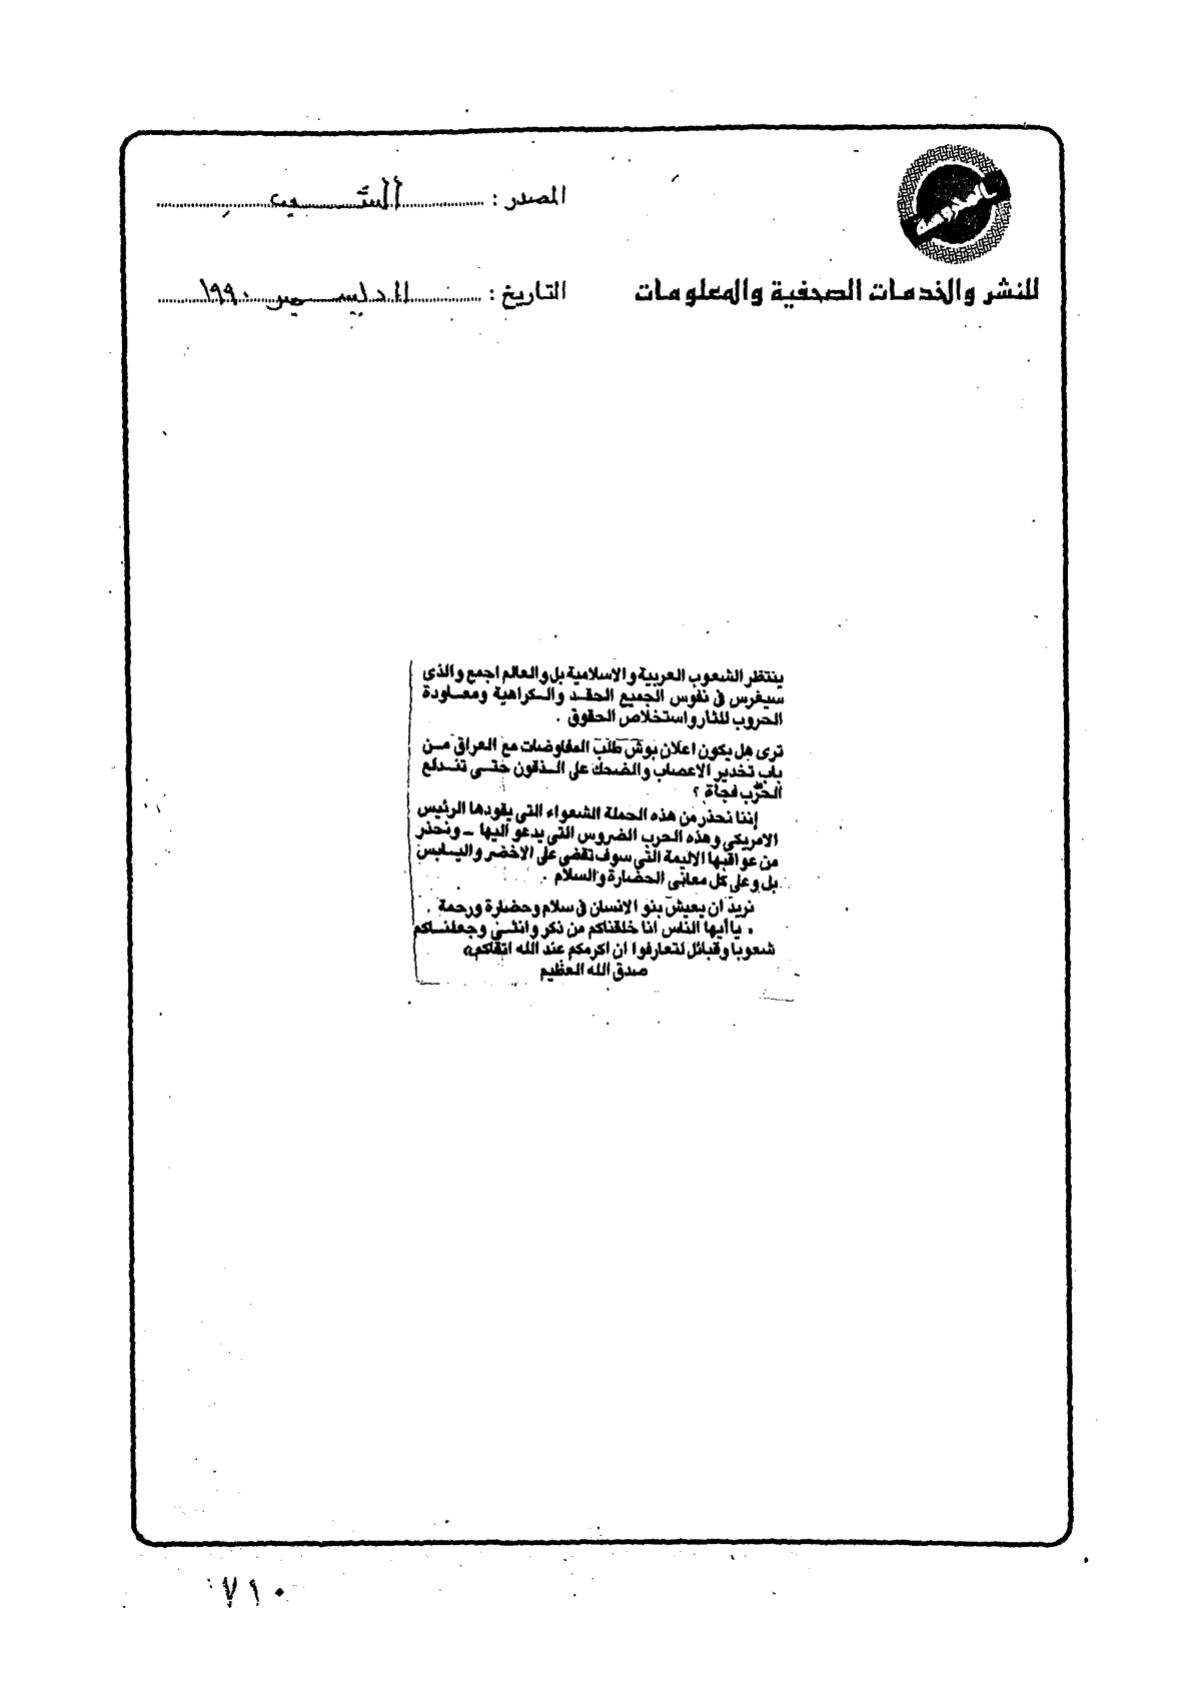 المصدر :
للنشر والخدمات الصحفية والمعلومات
التاريخ : ١١ ديسمبر ١٩٩٠
ينتظر الشعوب العربية والاسلامية بل والعالم اجمع والذى
سيغرس فى نفوس الجميع الحقد والكراهية ومعاودة
الحروب للثار واستخلاص الحقوق .
ترى هل يكون اعلان بوش طلب المفاوضات مع العراق من
باب تخدير الاعصاب والضحك على الذقون حتى تندلع
الحرب فجأة ؟
إننا نحذر من هذه الحملة الشعواء التى يقودها الرئيس
الامريكى وهذه الحرب الضروس التى يدعو اليها - ونحذر
من عواقبها الاليمة التى سوف تقضى على الاخضر واليابس
بل وعلى كل معانى الحضارة والسلام .
نريد ان يعيش بنو الانسان فى سلام وحضارة ورحمة .
« ياأيها الناس انا خلقناكم من ذكر وانثى وجعلناكم
شعوبا وقبائل لتعارفوا ان اكرمكم عند الله اتقاكم »
صدق الله العظيم
٧١٠